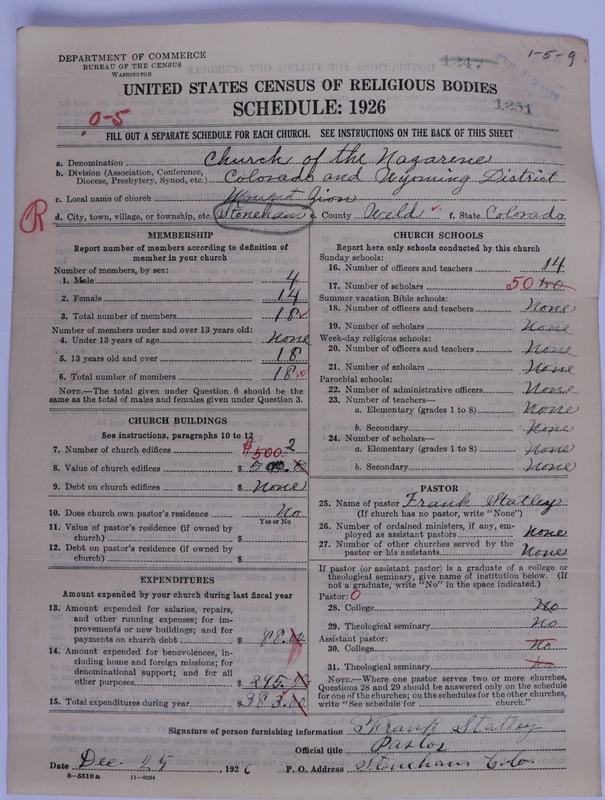 DEPARTMENT OF COMMERCE
BUREAU OF THE CENSUS
WASHINGTON
1-5-9
1247
1251
UNITED STATES CENSUS OF RELIGIOUS BODIES
SCHEDULE: 1926
0-5
FILL OUT A SEPARATE SCHEDULE FOR EACH CHURCH. SEE INSTRUCTIONS ON THE BACK OF THIS SHEET
a. Denomination Church of the Nazarene
b. Division (Association, Conference, Diocese, Presbytery, Synod, etc.) Colorado and Wyoming District
c. Local name of church Mount Zion
R
d. City, town, village, or township, etc. Stoneham e. County Weld f. State Colorado
MEMBERSHIP
Report number of members according to definition of
member in your church
Number of members, by sex:
1. Male 4
2. Female 14
3. Total number of members 18
Number of members under and over 13 years old:
4. Under 13 years of age None
5. 13 years old and over 18
6. Total number of members 18
NOTE.—The total given under Question 6 should be
same as the total of males and females given under Question 3.
CHURCH BUILDINGS
See instructions, paragraphs 10 to 12
7. Number of church edifices 2
$500.
8. Value of church edifices $
9. Debt on church edifices $ None
10. Does church own pastor's residence? No
Yes or No
11. Value of pastor's residence (if owned by
church) $
12. Debt on pastor's residence (if owned by
church) $
EXPENDITURES
Amount expended by your church during last fiscal year
13. Amount expended for salaries, repairs,
and other running expenses; for im-
provements or new buildings; and for
payments on church debt $ 88.
14. Amount expended for benevolences, in-
cluding home and foreign missions; for
denominational support; and for all
other purposes $ 295.
15. Total expenditures during year $ 383.00
CHURCH SCHOOLS
Report here only schools conducted by this church
Sunday schools:
16. Number of officers and teachers 14
17. Number of scholars 50
Summer vacation Bible schools:
18. Number of officers and teachers None
19. Number of scholars None
Week-day religious schools:
20. Number of officers and teachers None
21. Number of scholars None
Parochial schools:
22. Number of administrative officers None
23. Number of teachers—
a. Elementary (grades 1 to 8) None
b. Secondary None
24. Number of scholars—
a. Elementary (grades 1 to 8) None
b. Secondary None
PASTOR
25. Name of pastor Frank Statley
(If church has no pastor, write "None")
26. Number of ordained ministers, if any, em-
ployed as assistant pastors None
27. Number of other churches served by the
pastor or his assistants None
If pastor (or assistant pastor) is a graduate of a college or
theological seminary, give name of institution below. (If
not a graduate, write "No" in the space indicated.)
Pastor: 0
28. College No
29. Theological seminary No
Assistant pastor:
30. College No
31. Theological seminary No
NOTE.—Where one pastor serves two or more churches,
Questions 28 and 29 should be answered only on the schedule
for one of the churches; on the schedules for the other churches,
write "See schedule for church."
Signature of person furnishing information Frank Statley
Official title Pastor
Date Dec. 25, 1926 P. O. Address Stoneham Colo.
8-5518a 11-9054